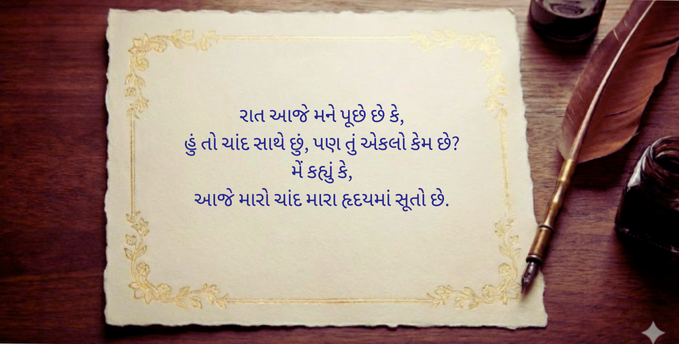 રાત આજે મને પૂછે છે કે,
હું તો ચાંદ સાથે છું, પણ તું એકલો કેમ છે?
મેં કહ્યું કે,
આજે મારો ચાંદ મારા હૃદયમાં સૂતો છે.